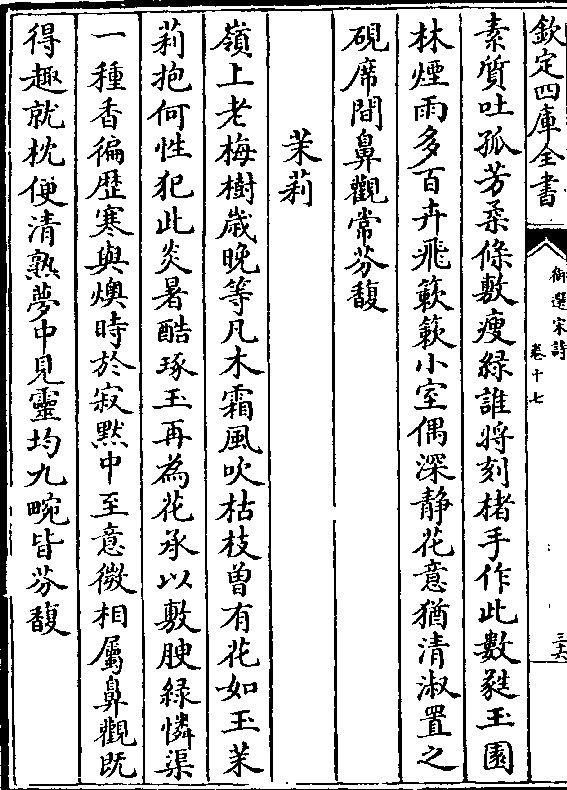 欽定四庫全書
御選宋詩
卷十七
三六
素質吐孤芳柔條敷瘦緑誰將刻楮手作此數蕤玉園
林煙雨多百卉飛簌簌小室偶深静花意猶清淑置之
硯席間鼻觀常芬馥
茉莉
嶺上老梅樹歲晚等凡木霜風吹枯枝曽有花如玉茉
莉抱何性犯此炎暑酷琢玉再為花承以敷腴緑憐渠
一種香徧歴寒與燠時於寂黙中至意微相屬鼻觀既
得趣就枕便清熟夢中見靈均九畹皆芬馥